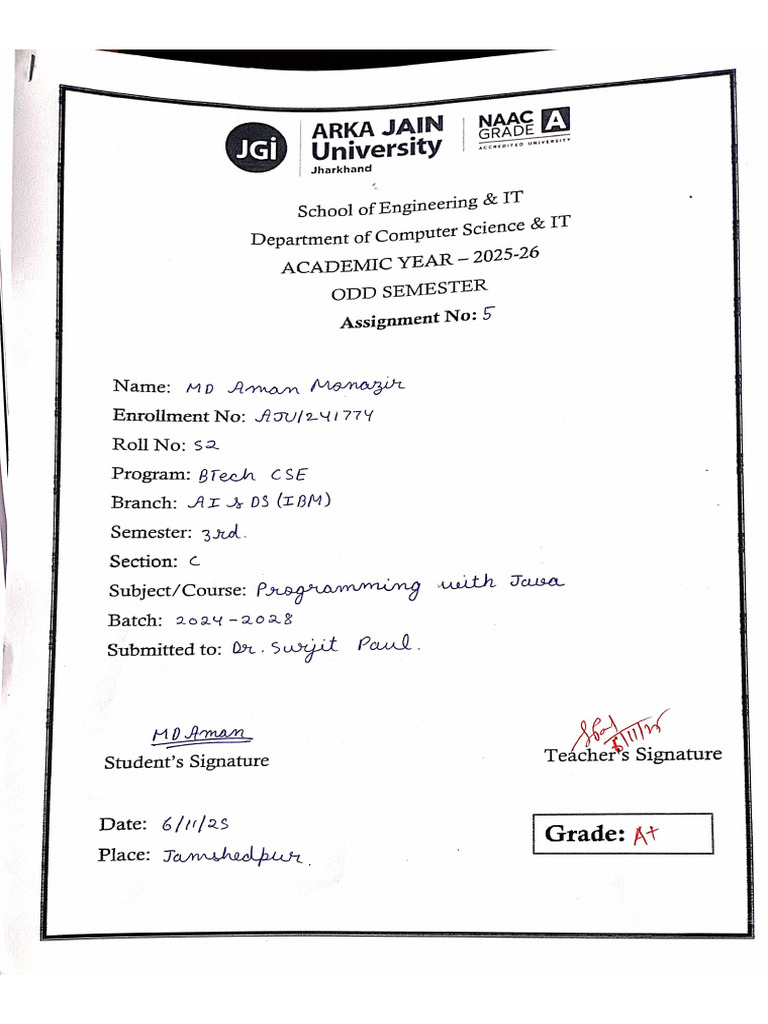 JGi
ARKA JAIN
University
Jharkhand
NAAC
GRADE A
ACCREDITED UNIVERSITY
School of Engineering & IT
Department of Computer Science & IT
ACADEMIC YEAR – 2025-26
ODD SEMESTER
Assignment No: 5
Name: MD Aman Monazir
Enrollment No: AJU/241774
Roll No: 52
Program: BTech CSE
Branch: AI & DS (IBM)
Semester: 3rd.
Section: C
Subject/Course: Programming with Java
Batch: 2024-2028
Submitted to: Dr. Surjit Paul.
MD Aman
Student's Signature
6/11/25
Teacher's Signature
Date: 6/11/25
Place: Jamshedpur.
Grade: A+